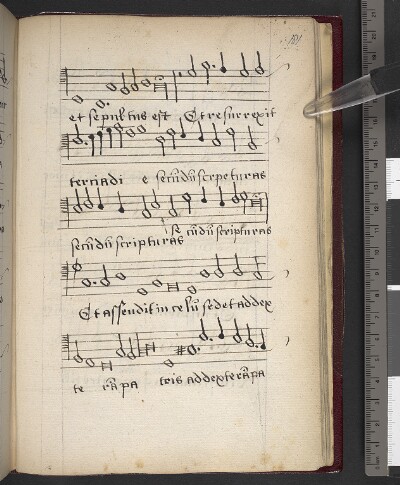 et sepultus est Et resurrexit
tercia di e secūdū scrpeturas
secūdū scripturas se cūdū scripturas
Et assendit in celū sedet ad dex
te rā pa tris ad dexterā pa